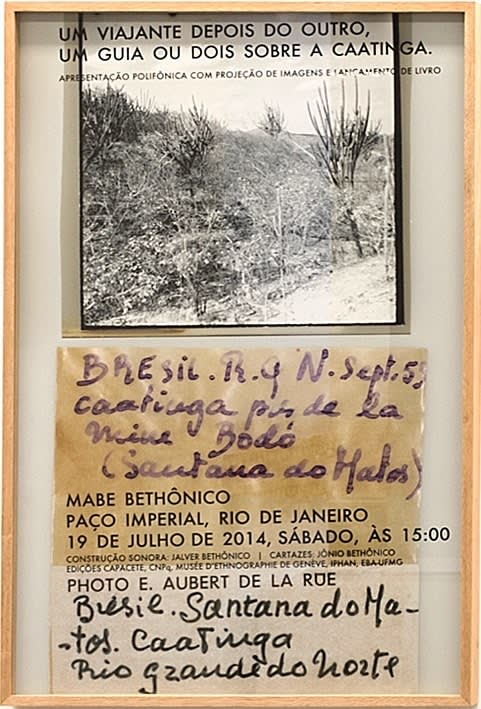 UM VIAJANTE DEPOIS DO OUTRO,
UM GUIA OU DOIS SOBRE A CAATINGA.
APRESENTAÇÃO POLIFÔNICA COM PROJEÇÃO DE IMAGENS E LANÇAMENTO DE LIVRO
BRESIL. R. G N. Sept. 53
caatinga près de la
mine Bodó
(Santana do Matos)
MABE BETHÔNICO
PAÇO IMPERIAL, RIO DE JANEIRO
19 DE JULHO DE 2014, SÁBADO, ÀS 15:00
CONSTRUÇÃO SONORA: JALVER BETHÔNICO | CARTAZES: JÔNIO BETHÔNICO
EDIÇÕES CAPACETE, CNPq, MUSÉE D'ETHNOGRAPHIE DE GENÈVE, IPHAN, EBA-UFMG
PHOTO E. AUBERT DE LA RÜE
Brésil. Santana do Ma-
-tos. Caatinga
Rio Grande do Norte